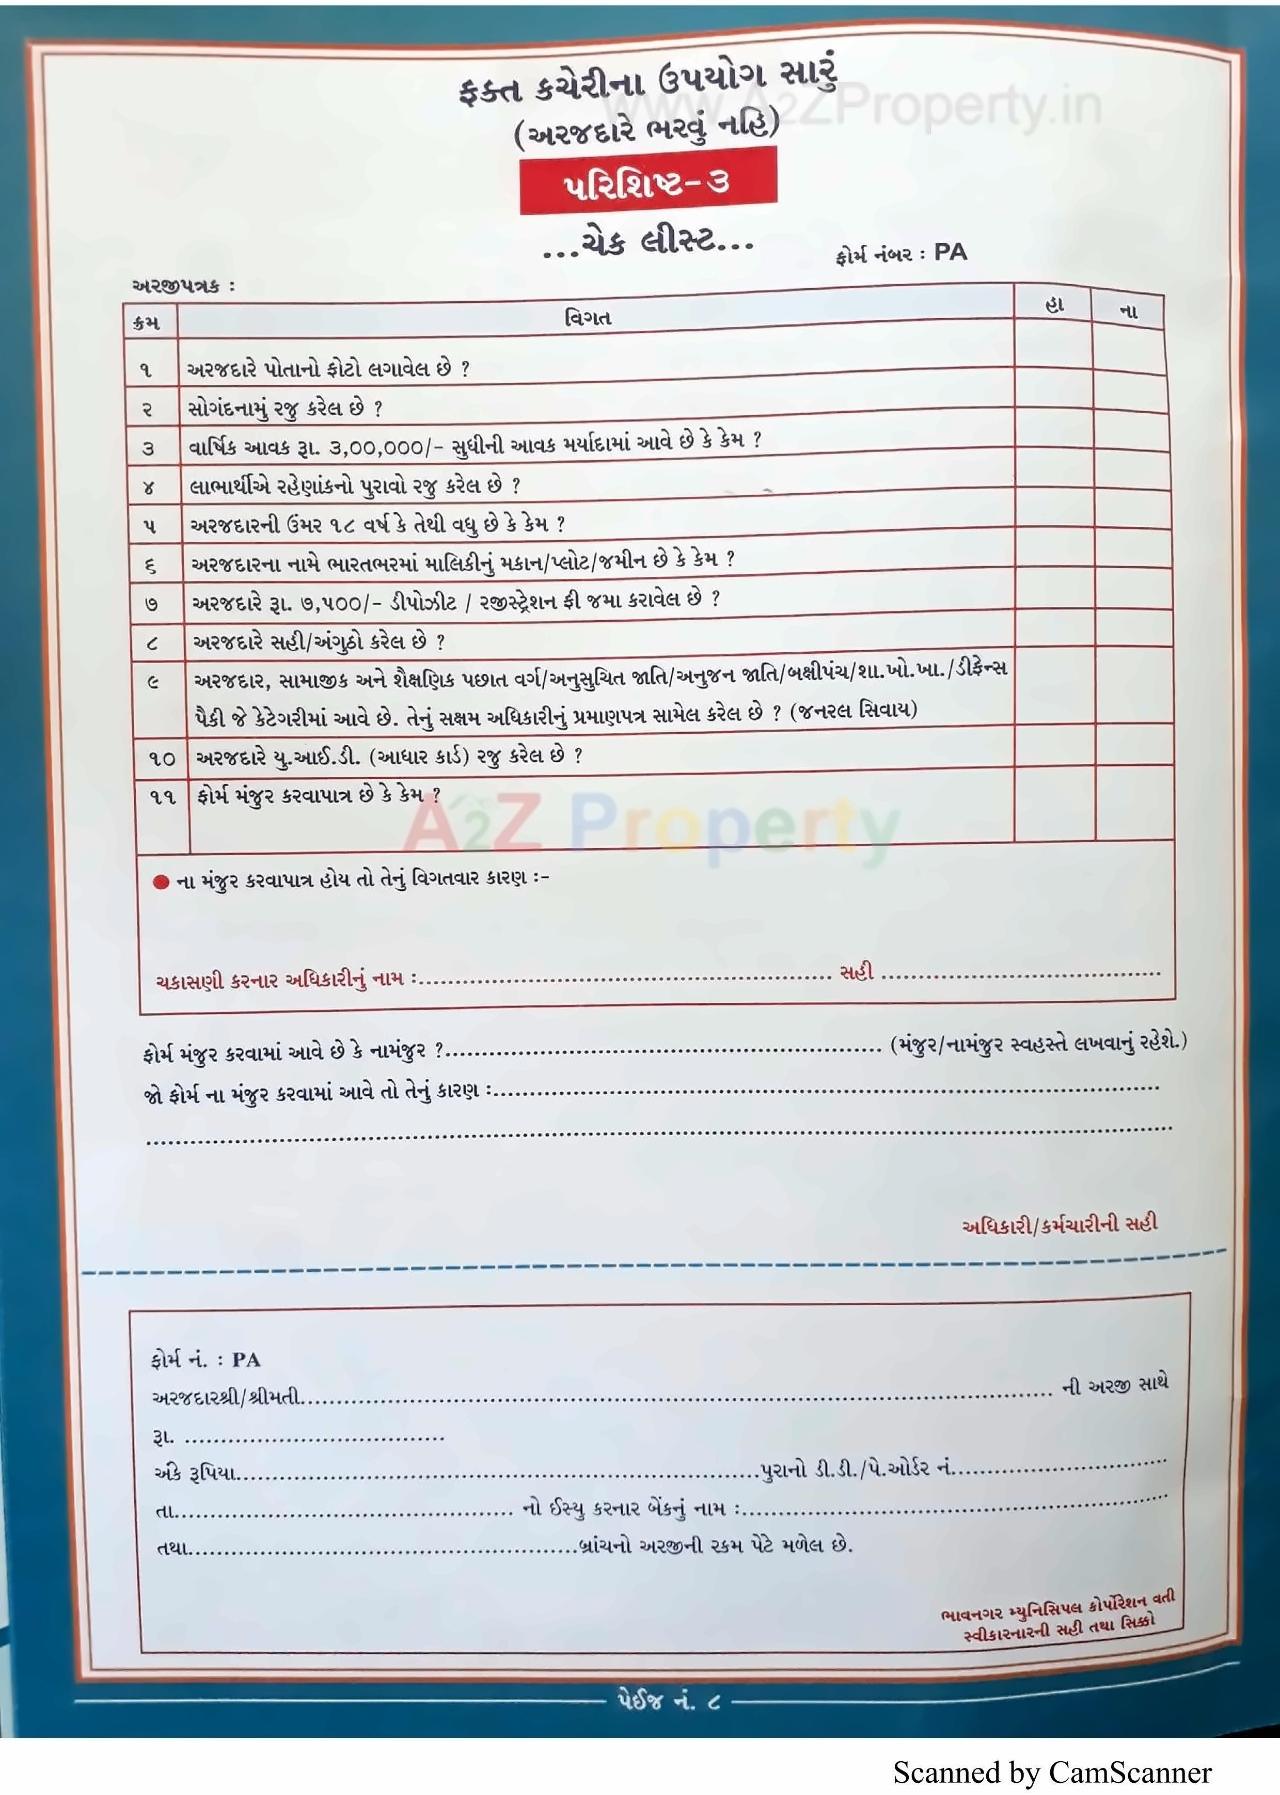 ફક્ત કચેરીના ઉપયોગ સારું
www.A2ZProperty.in
(અરજદારે ભરવું નહિ)
પરિશિષ્ટ-૩
...ચેક લીસ્ટ...
ફોર્મ નંબર : PA
અરજીપત્રક :
ક્રમ વિગત હા ના
૧ અરજદારે પોતાનો ફોટો લગાવેલ છે ?
૨ સોગંદનામું રજુ કરેલ છે ?
૩ વાર્ષિક આવક રૂા. ૩,૦૦,૦૦૦/- સુધીની આવક મર્યાદામાં આવે છે કે કેમ ?
૪ લાભાર્થીએ રહેણાંકનો પુરાવો રજુ કરેલ છે ?
૫ અરજદારની ઉંમર ૧૮ વર્ષ કે તેથી વધુ છે કે કેમ ?
૬ અરજદારના નામે ભારતભરમાં માલિકીનું મકાન/પ્લોટ/જમીન છે કે કેમ ?
૭ અરજદારે રૂા. ૭,૫૦૦/- ડીપોઝીટ / રજીસ્ટ્રેશન ફી જમા કરાવેલ છે ?
૮ અરજદારે સહી/અંગુઠો કરેલ છે ?
૯ અરજદાર, સામાજીક અને શૈક્ષણિક પછાત વર્ગ/અનુસુચિત જાતિ/અનુજન જાતિ/બક્ષીપંચ/શા.ખો.ખા./ડીફેન્સ
પૈકી જે કેટેગરીમાં આવે છે. તેનું સક્ષમ અધિકારીનું પ્રમાણપત્ર સામેલ કરેલ છે ? (જનરલ સિવાય)
૧૦ અરજદારે યુ.આઈ.ડી. (આધાર કાર્ડ) રજુ કરેલ છે ?
૧૧ ફોર્મ મંજુર કરવાપાત્ર છે કે કેમ ?
A2Z Property
● ના મંજુર કરવાપાત્ર હોય તો તેનું વિગતવાર કારણ :-
ચકાસણી કરનાર અધિકારીનું નામ :.................................................... સહી ...................................
ફોર્મ મંજુર કરવામાં આવે છે કે નામંજુર ?....................................................... (મંજુર/નામંજુર સ્વહસ્તે લખવાનું રહેશે.)
જો ફોર્મ ના મંજુર કરવામાં આવે તો તેનું કારણ :....................................................................................
..................................................................................................................................
અધિકારી/કર્મચારીની સહી
ફોર્મ નં. : PA
અરજદારશ્રી/શ્રીમતી............................................................................................... ની અરજી સાથે
રૂા. .................................
અંકે રૂપિયા..................................................................પુરાનો ડી.ડી./પે.ઓર્ડર નં...........................
તા........................................... નો ઈસ્યુ કરનાર બેંકનું નામ :......................................................
તથા.................................................બ્રાંચનો અરજીની રકમ પેટે મળેલ છે.
ભાવનગર મ્યુનિસિપલ કોર્પોરેશન વતી
સ્વીકારનારની સહી તથા સિક્કો
પેઈજ નં. ૮
Scanned by CamScanner